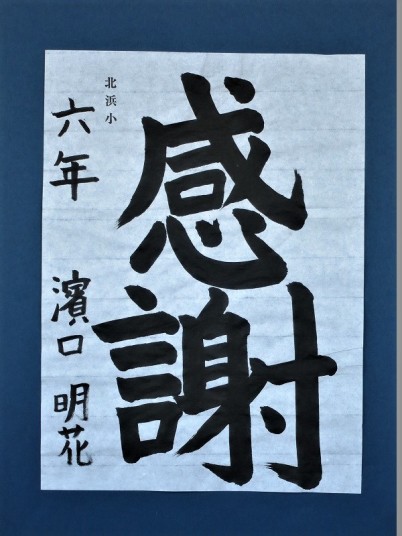 感謝
北浜小
六年 濵口 明花